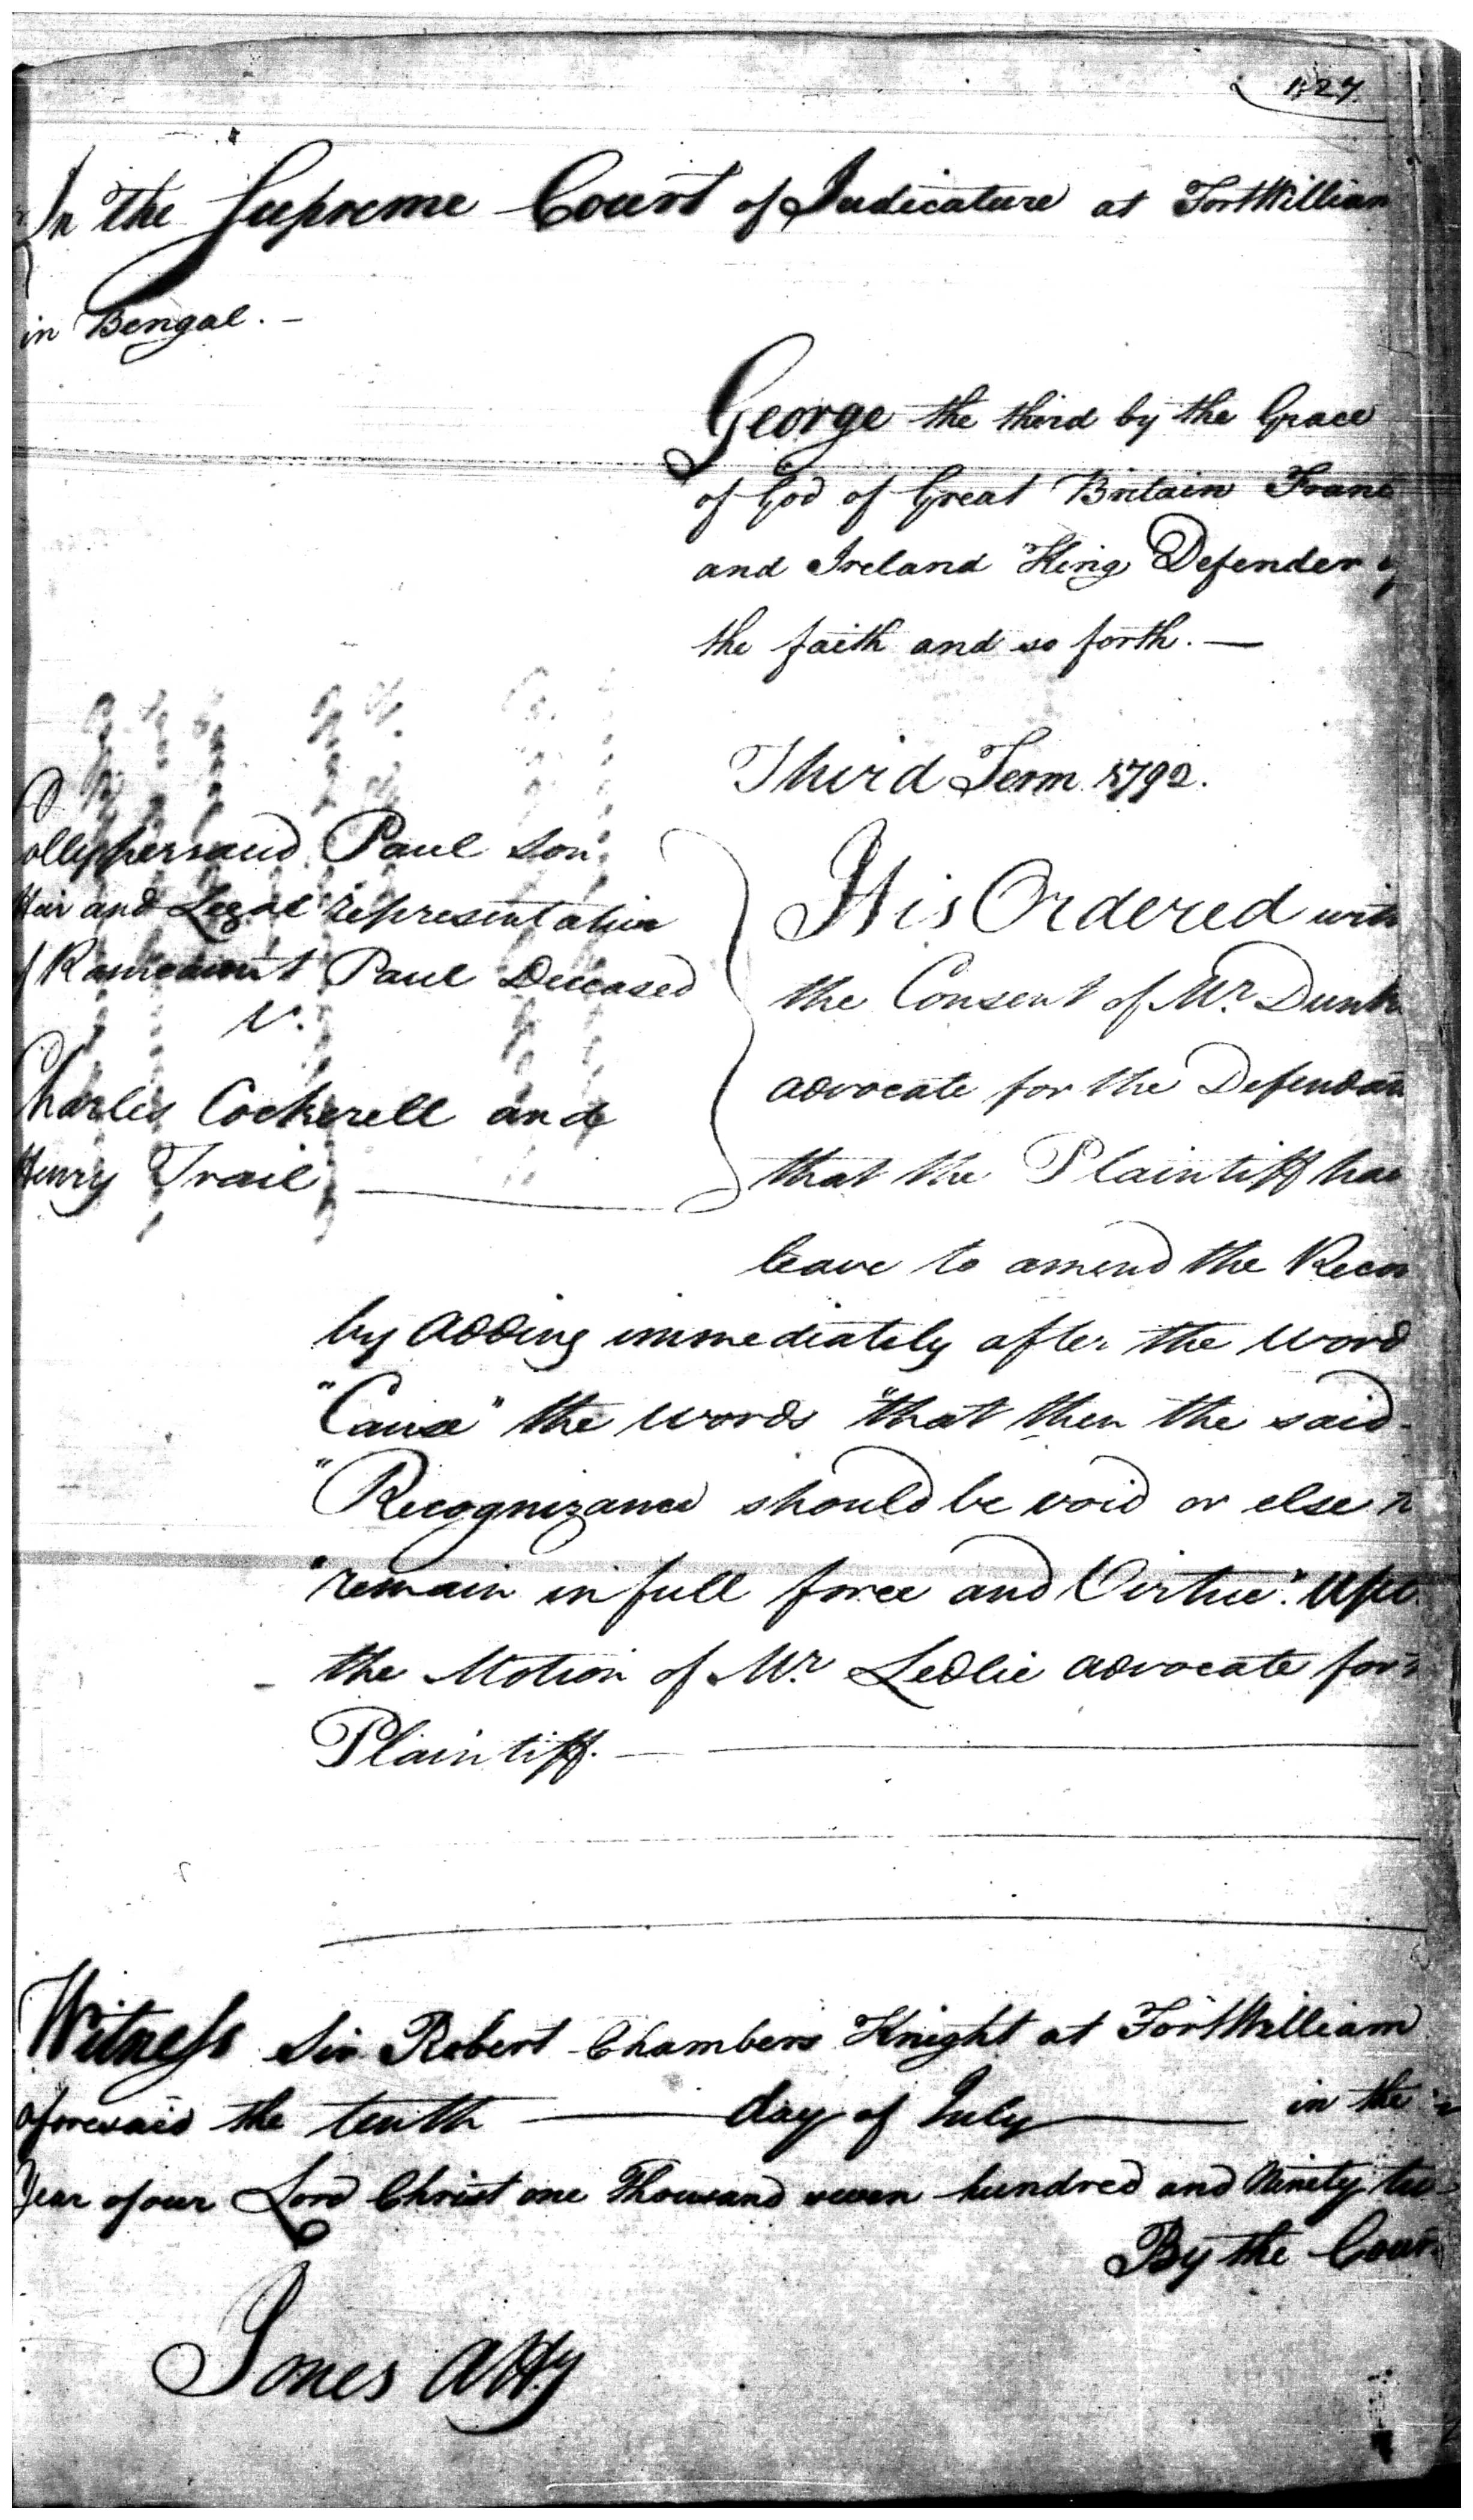 1827.
In the Supreme Court of Judicature at Fort William
in Bengal. -
George the third by the Grace
of God of Great Britain Franc
and Ireland King Defender of
the faith and so forth. —
Third Term 1792.
ollypersaud Paul Son
Heir and Legal representative
f Paul Deceased
v.
Charles Cockerell and
Henry Trail
It is Ordered with
the Consent of Mr. Dunk
advocate for the Defendan
that the Plaintiff hav
leave to amend the Recor
by adding immediately after the word
"Cause" the words "that then the said
"Recognizance should be void or else
"remain in full force and Virtue". Upo
the Motion of Mr. Ledlie advocate for
Plaintiff. —
Witness Sir Robert Chambers Knight at Fort William
aforesaid the tenth — day of July — in the
Year of our Lord Christ one Thousand seven hundred and Ninety two
By the Cour
Jones Atty